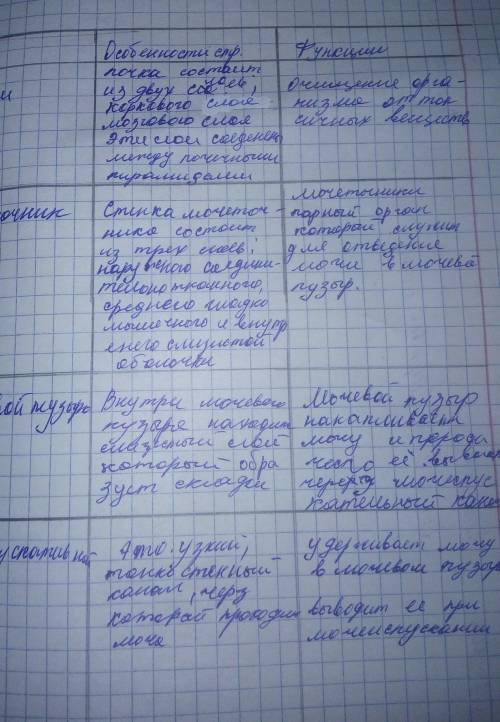 Особенности стр.
почка состоит
из двух слоев,
коркового слоя
мозгового слоя
Эти слои соеденены
между почечными
пирамидами
Функции
очищение орга-
низма от ток
сичных веществ
очник
Стенка мочеточ-
ника состоит
из трех слоев:
наружного соедини-
тельнотканного,
среднего гладко
мышечного и внутр
еннего слизистой
оболочки
мочеточники
парный орган
который служит
для отведения
мочи в мочевой
пузыр.
ой пузырь
Внутри мочевого
пузыря находит
слизистый слой
который обра
зует складки
Мочевой пузыр
накапливает
мочу и периоди
чески её вывод
через мочеиспус
кательный канал
ускательный
Это узкий,
тонкостенный
канал, черз
который проходит
моча
удерживает мочу
в мочевом пузыр
выводит ее при
мочеиспускании